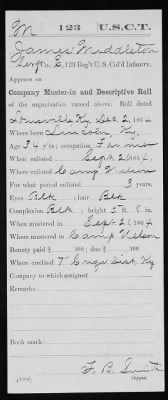 M 123 U.S.C.T.
James Middleton
Serg't, Co. E, 123 Reg't U. S. Col'd Infantry.
Appears on
Company Muster-in and Descriptive Roll
of the organization named above. Roll dated
Louisville Ky, Dec 2, 1864
Where born Lincoln, Ky.
Age 34 y'rs; occupation Farmer
When enlisted Sept. 21, 1864.
Where enlisted Camp Nelson
For what period enlisted 3 years.
Eyes Blk; hair Blk
Complexion Blk; height 5 ft. 8 in.
When mustered in Sept 21, 1864
Where mustered in Camp Nelson
Bounty paid $ 100; due $ 100
Where credited 7" Cong. Dist. Ky
Company to which assigned
Remarks:
Book mark:
F. B. Smith
Copyist.